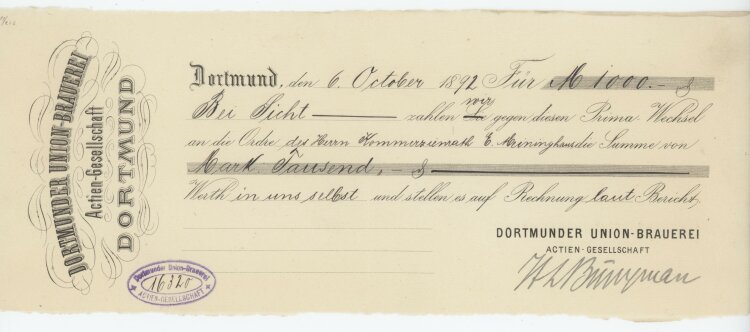 DORTMUNDER UNION-BRAUEREI
Actien-Gesellschaft
DORTMUND
Dortmund, den 6. October 1892 Für M 1000.-
Bei Sicht zahlen wir gegen diesen Prima Wechsel
an die Ordre des Herrn Kommerzienrath E. Meininghaus die Summe von
Mark Tausend,-
Werth in uns selbst und stellen es auf Rechnung laut Bericht,
DORTMUNDER UNION-BRAUEREI
ACTIEN-GESELLSCHAFT
Dortmunder Union-Brauerei
16320
ACTIEN-GESELLSCHAFT